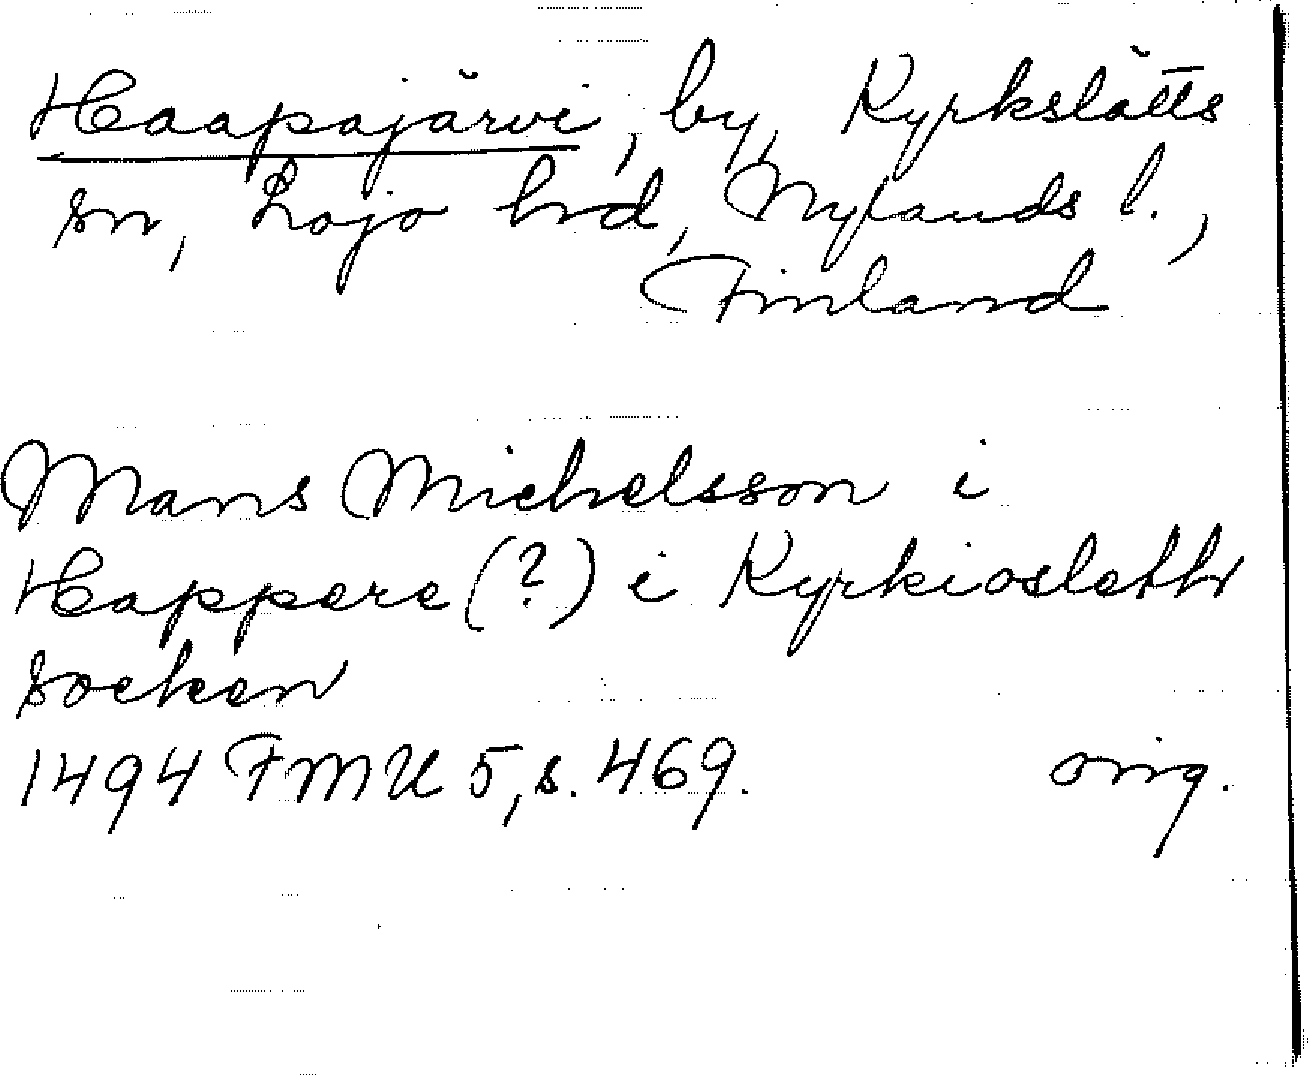 Haapajärvi, by, Kyrkslätts
sn, Lojo hrd, Nylands l.,
Finland
Mans Michelsson i
Happere (?) i Kyrkioslethr
socken
1494 FMU 5, s. 469. orig.